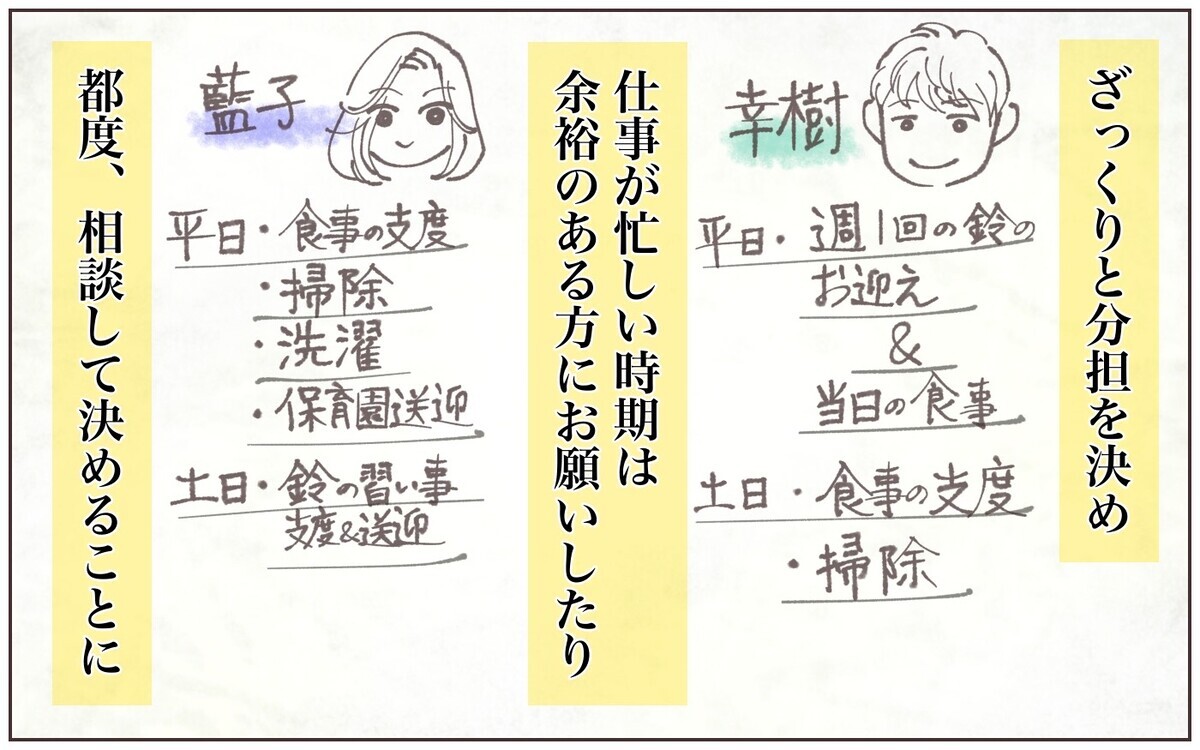 ざっくりと分担を決め
幸樹
平日・週1回の鈴の
お迎え
&
当日の食事
土日・食事の支度
・掃除
仕事が忙しい時期は
余裕のある方にお願いしたり
藍子
平日・食事の支度
・掃除
・洗濯
・保育園送迎
土日・鈴の習い事
支度&送迎
都度、相談して決めることに